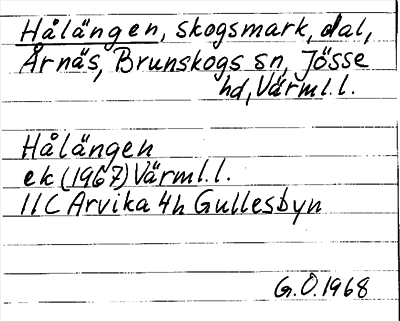 Hålängen, skogsmark, dal,
Årnäs, Brunskogs sn, Jösse
hd, Värml.l.
Hålängen
ek (1967) Värml.l.
11C Arvika 4h Gullesbyn
G.Ö.1968